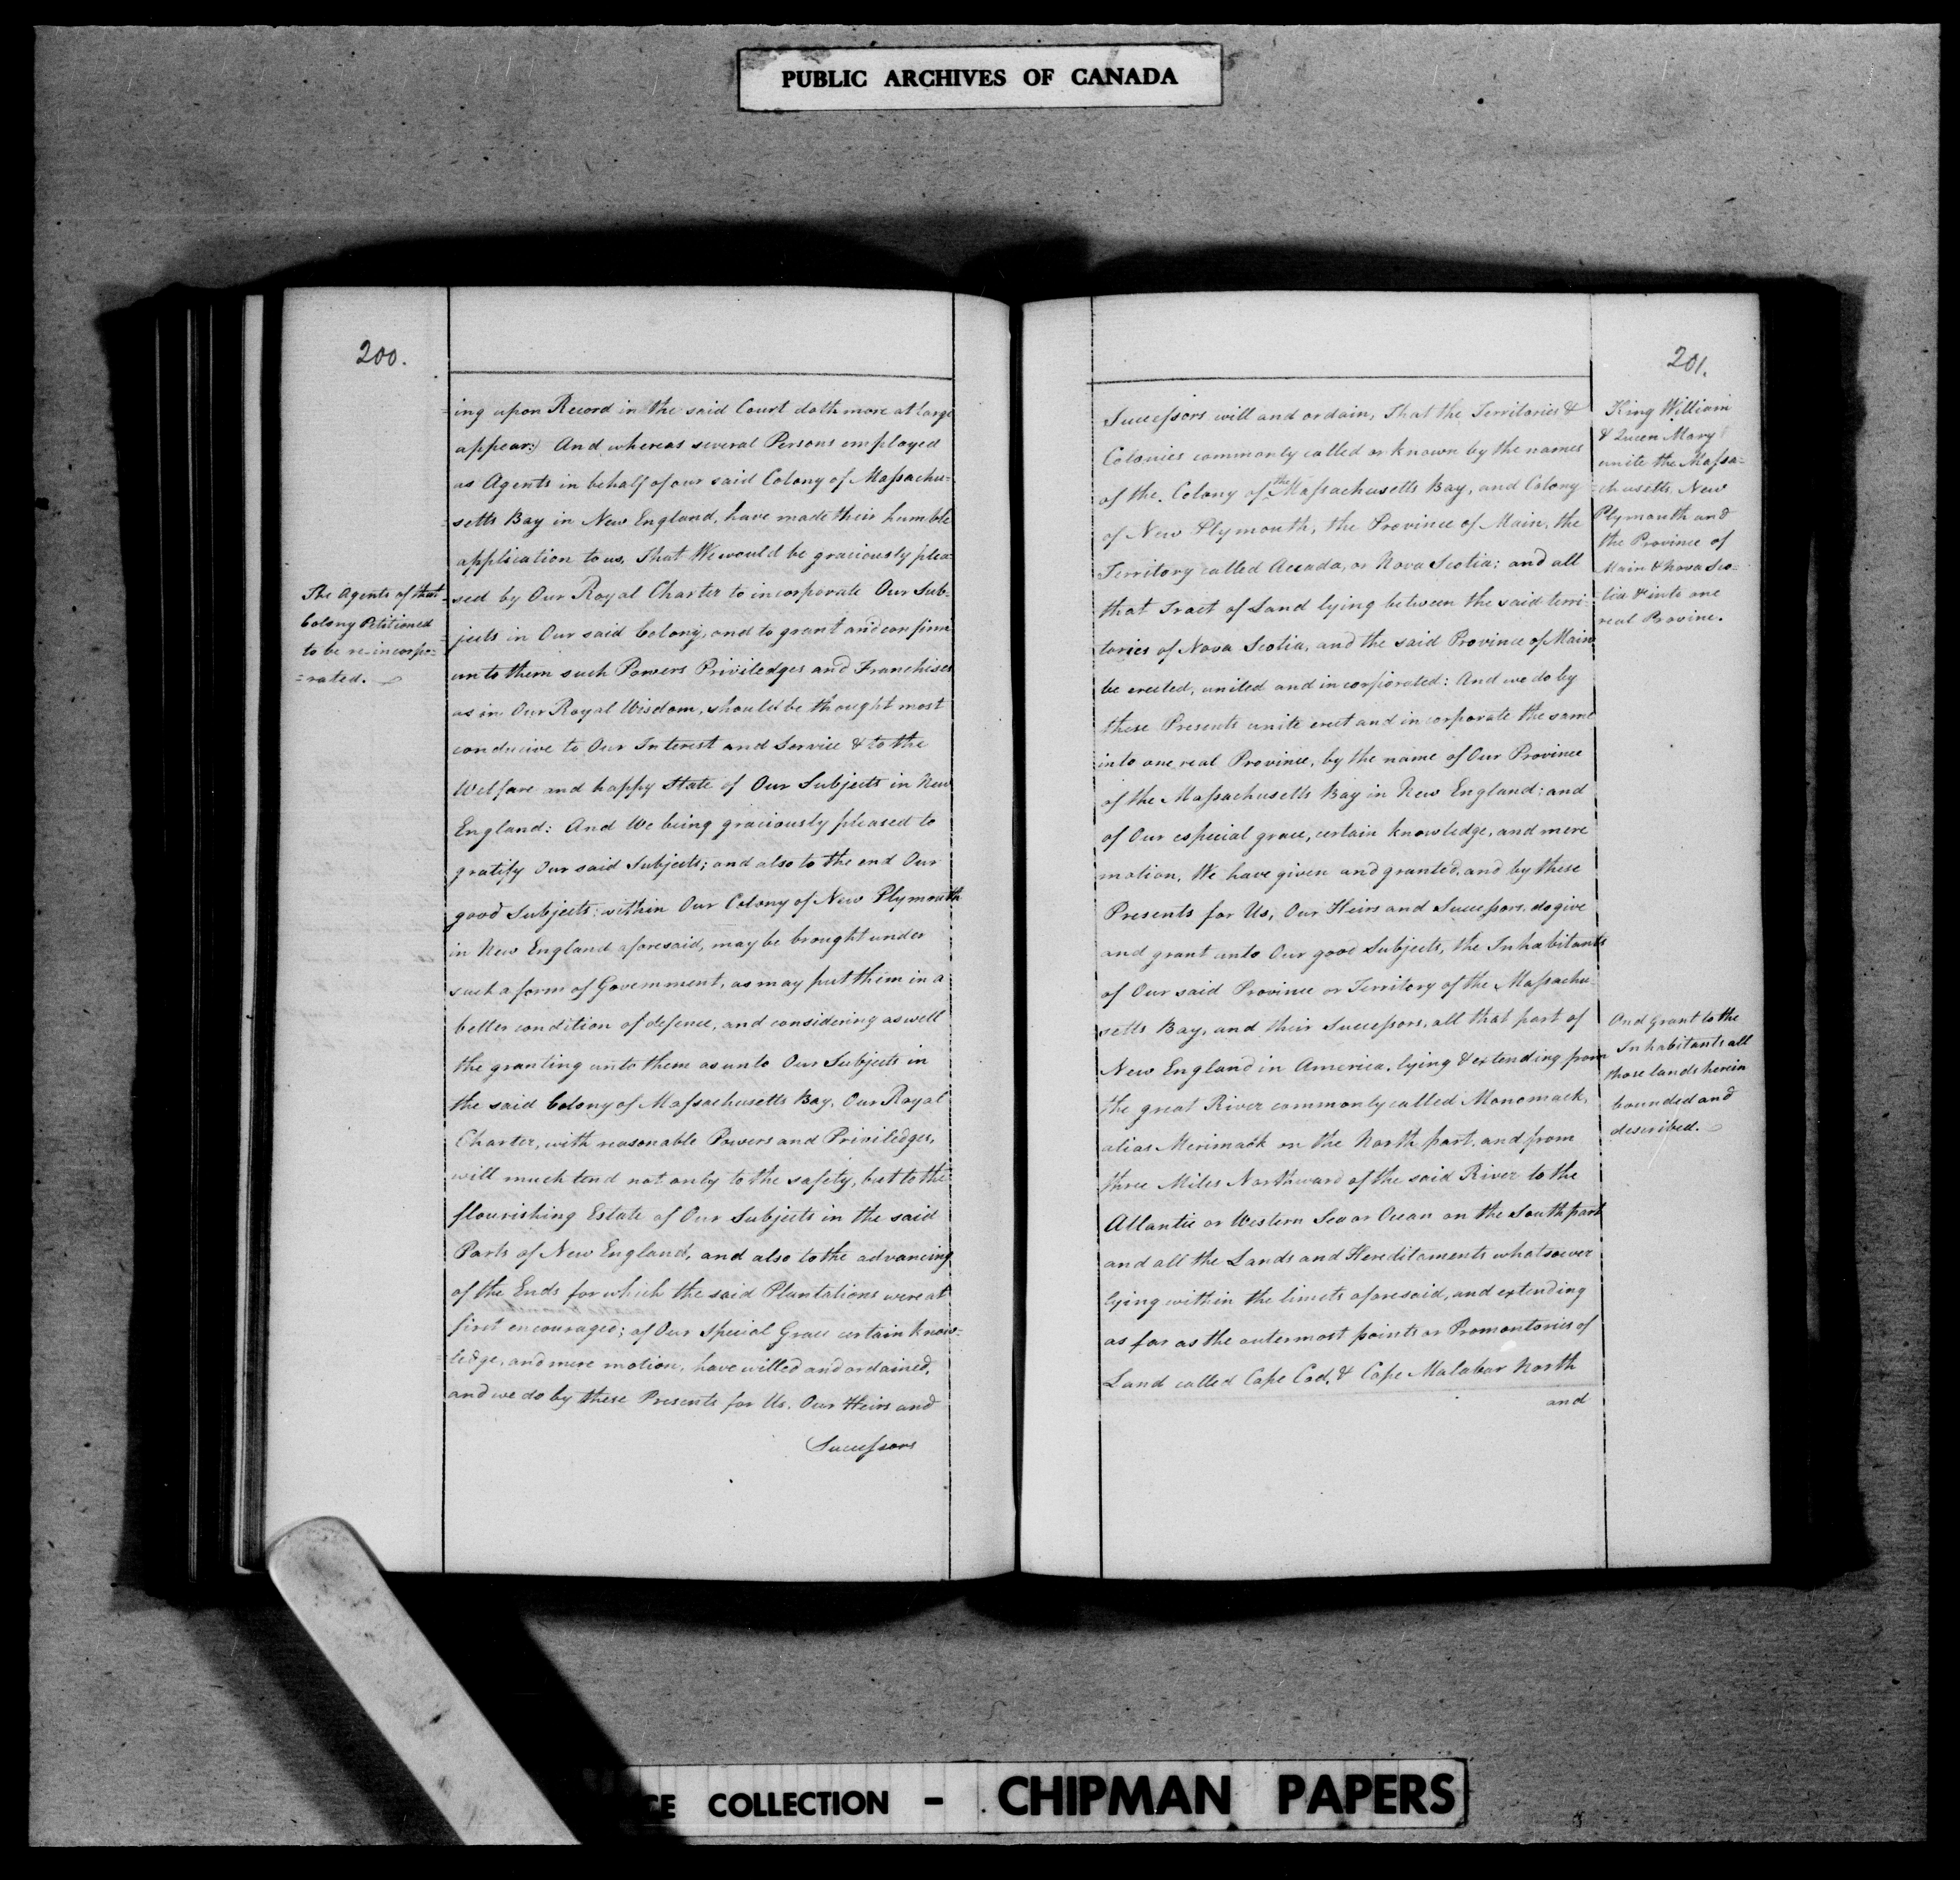 PUBLIC ARCHIVES OF CANADA
200.
=ing upon Record in the said Court doth more at large
appear:) And whereas several Persons employed
as Agents in behalf of our said Colony of Massachu=
=setts Bay in New England, have made their humble
application to us, That We would be graciously plea=
=sed by Our Royal Charter to incorporate Our Sub=
=jects in Our said Colony, and to grant and confirm
unto them such Powers Priviledges and Franchises
as in Our Royal Wisdom, should be thought most
conducive to Our Interest and Service & to the
Welfare and happy State of Our Subjects in New
England: And We being graciously pleased to
gratify Our said Subjects; and also to the end Our
good Subjects within Our Colony of New Plymouth
in New England aforesaid, may be brought under
such a form of Government, as may put them in a
better condition of defence, and considering as well
the granting unto them as unto Our Subjects in
the said Colony of Massachusetts Bay, Our Royal
Charter, with reasonable Powers and Priviledges,
will much tend not only to the safety, but to the
flourishing Estate of Our Subjects in the said
Parts of New England, and also to the advancing
of the Ends for which the said Plantations were at
first encouraged; of Our Special Grace certain know=
=ledge, and mere motion, have willed and ordained,
and we do by these Presents for Us, Our Heirs and
Successors
The Agents of that
Colony Petitioned
to be re-incorpo=
=rated.
201.
Successors will and ordain, That the Territories &
Colonies commonly called or known by the names
of the Colony of the Massachusetts Bay, and Colony
of New Plymouth, the Province of Main, the
Territory called Accada, or Nova Scotia; and all
that Tract of Land lying between the said terri=
tories of Nova Scotia, and the said Province of Main
be erected, united and incorporated: And we do by
these Presents unite erect and incorporate the same
into one real Province, by the name of Our Province
of the Massachusetts Bay in New England: and
of Our especial grace, certain knowledge, and mere
motion, We have given and granted, and by these
Presents for Us, Our Heirs and Successors, do give
and grant unto Our good Subjects, the Inhabitants
of Our said Province or Territory of the Massachu=
setts Bay, and their Successors, all that part of
New England in America, lying & extending from
the great River commonly called Monomack,
alias Merimack on the North part, and from
three Miles Northward of the said River to the
Atlantic or Western Sea or Ocean on the South part
and all the Lands and Hereditaments whatsoever
lying within the limets aforesaid, and extending
as far as the outermost points or Promontories of
Land called Cape Cod, & Cape Malabar North
and
King William
& Queen Mary
unite the Massa=
=chusetts, New
Plymouth and
the Province of
Main & Nova Sco=
=tia & into one
real Provine.
And Grant to the
Inhabitants all
those lands herein
bounded and
described.
CE COLLECTION - CHIPMAN PAPERS